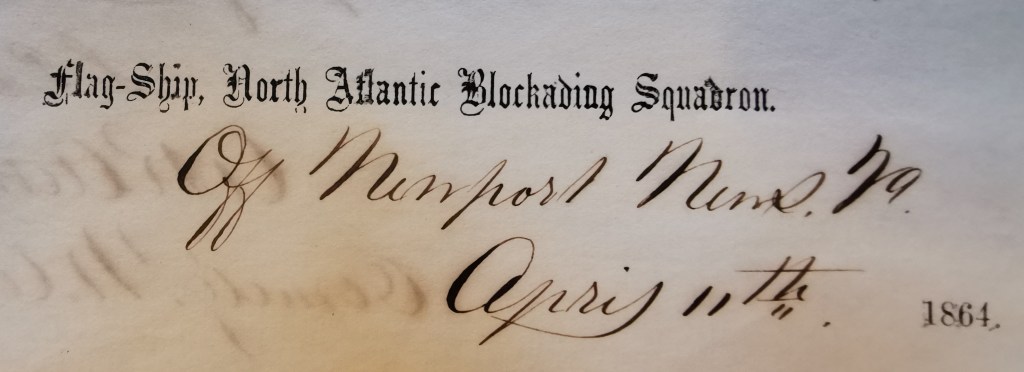 Flag-Ship, North Atlantic Blockading Squadron.
Off Newport News. Va.
April 11th. 1864.